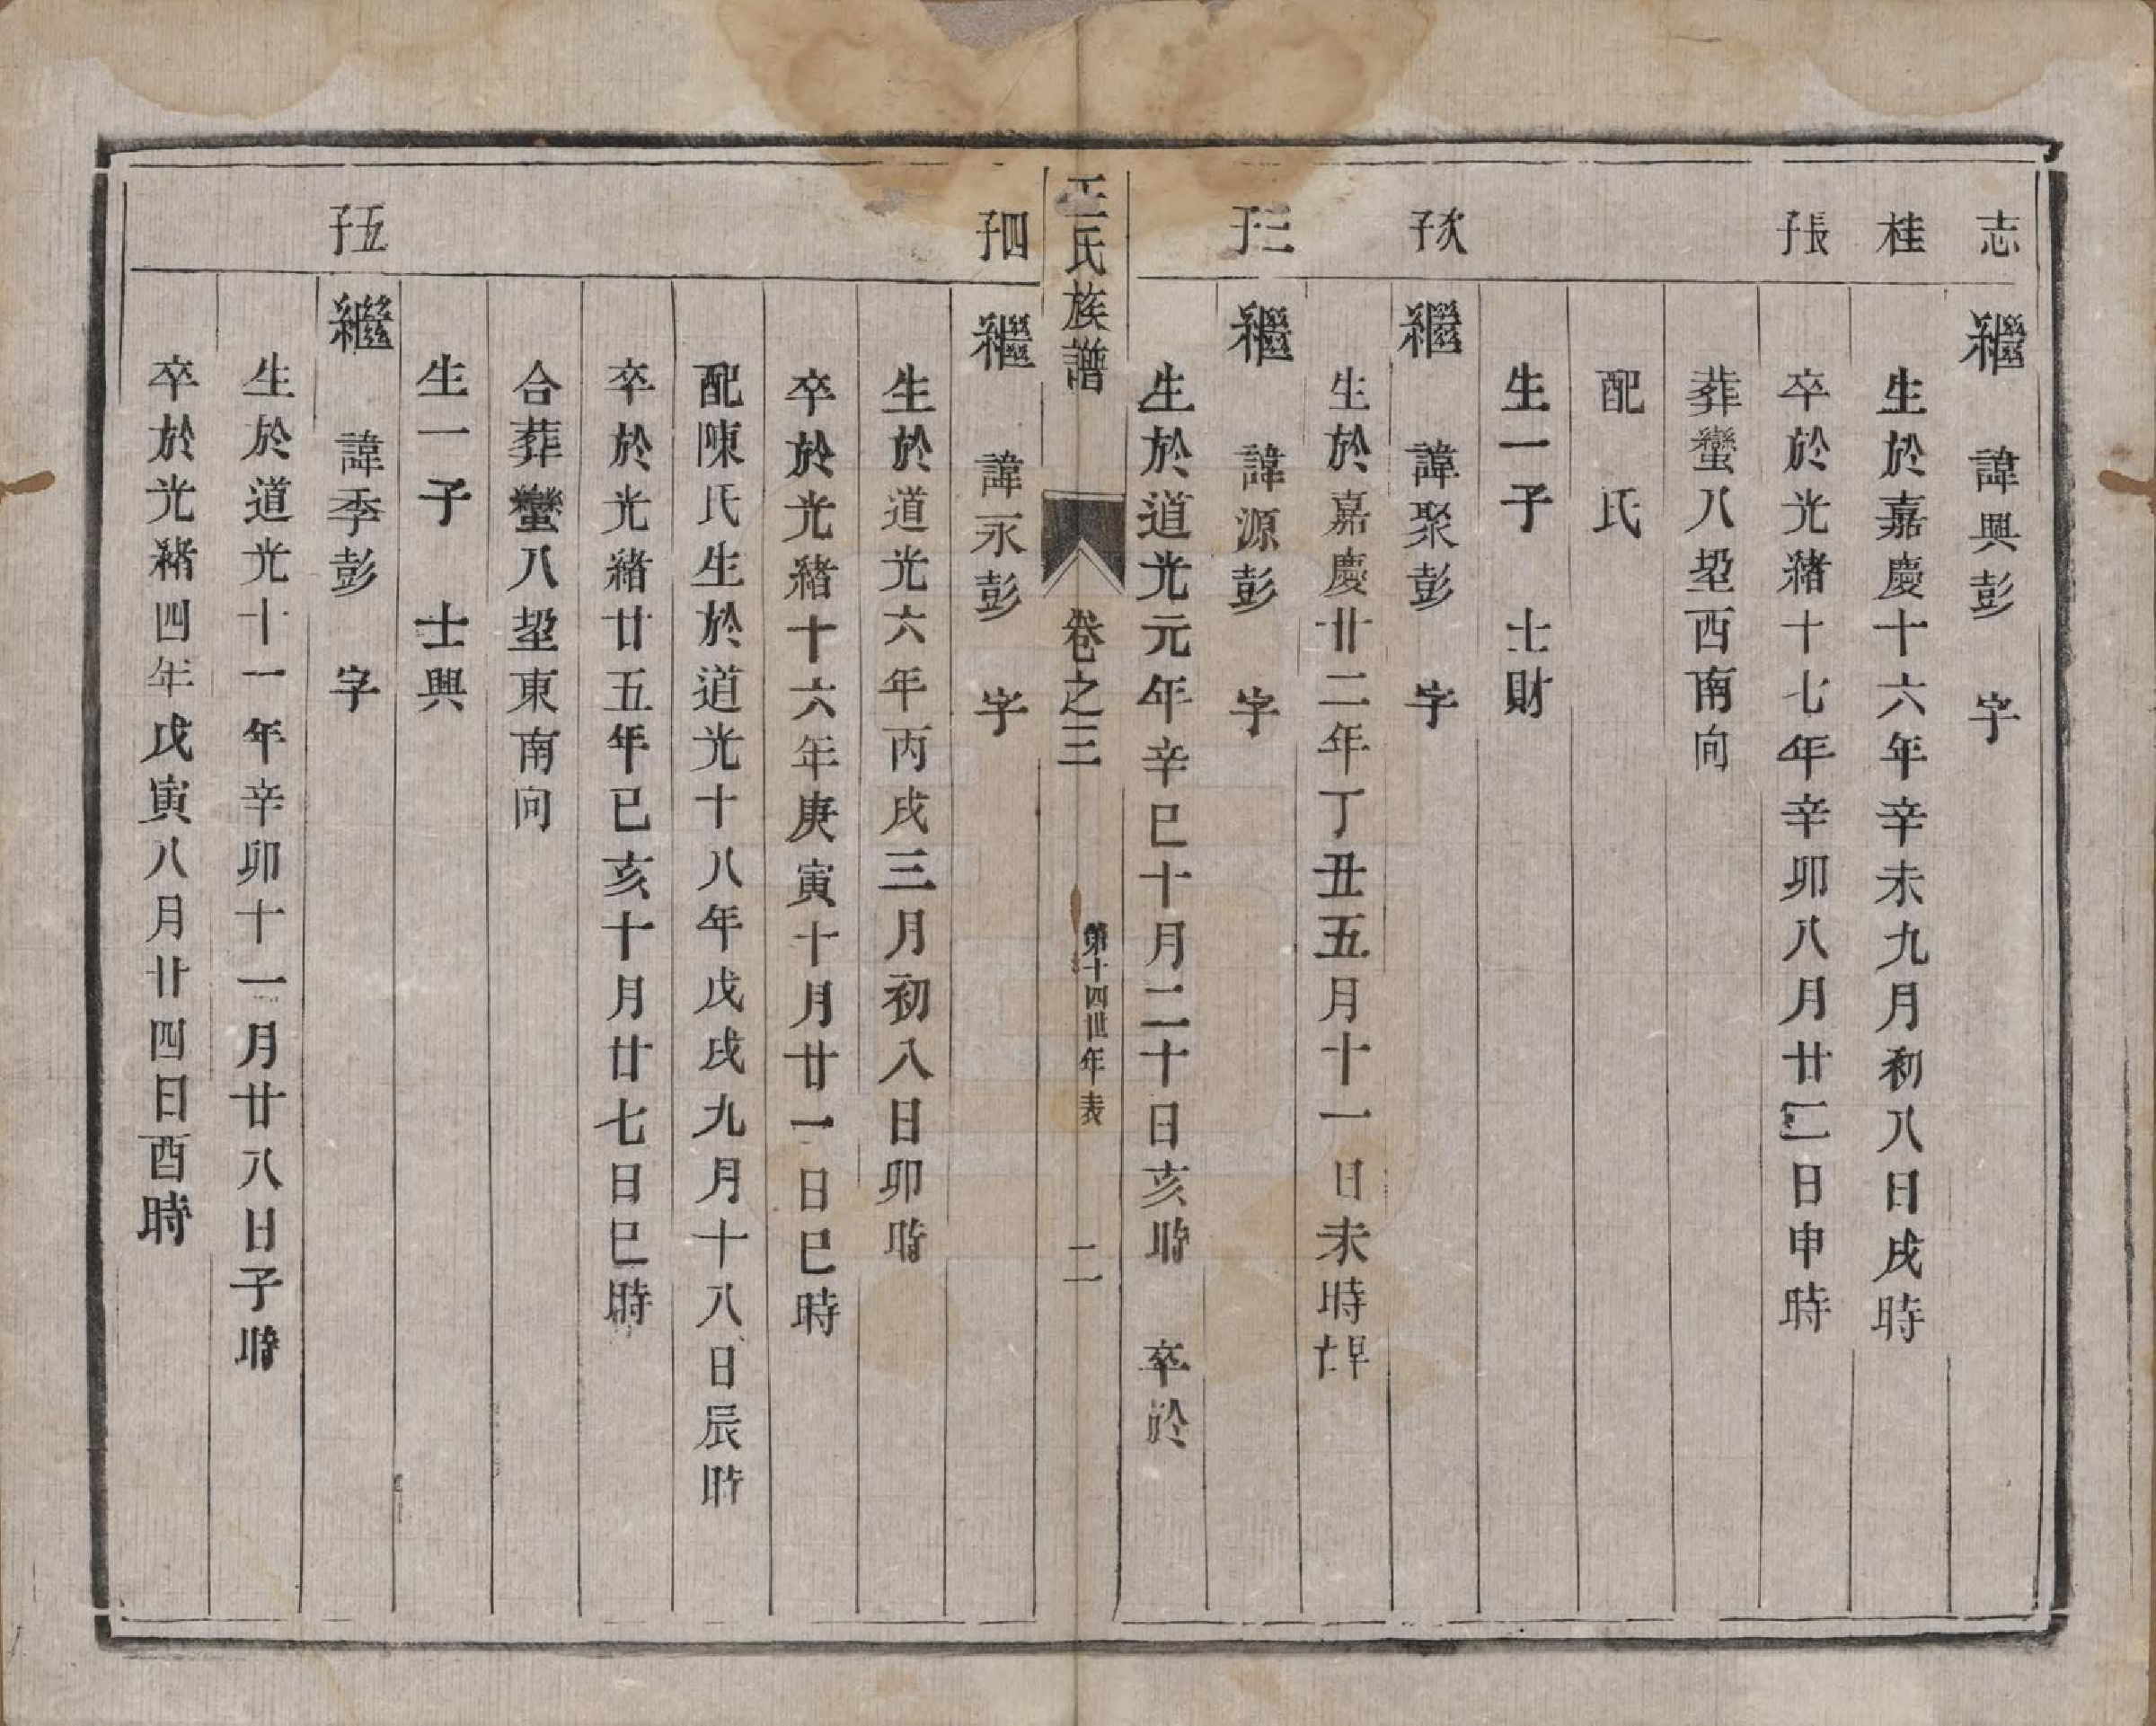 志
繼　諱興彭　字
桂
生於嘉慶十六年辛未九月初八日戌時
長子
卒於光緒十七年辛卯八月廿二日申時
葬蠻八塱西南向
配　氏
生一子　士財
次子
繼　諱聚彭　字
生於嘉慶廿二年丁丑五月十一日未時
三子
繼　諱源彭　字
生於道光元年辛巳十月二十日亥時　卒於
王氏族譜　卷之三　第十四世年表　二
四子
繼　諱永彭　字
生於道光六年丙戌三月初八日卯時
卒於光緒十六年庚寅十月廿一日巳時
配陳氏生於道光十八年戊戌九月十八日辰時
卒於光緒廿五年己亥十月廿七日巳時
合葬蠻八塱東南向
生一子　士興
五子
繼　諱季彭　字
生於道光十一年辛卯十一月廿八日子時
卒於光緒四年戊寅八月廿四日酉時